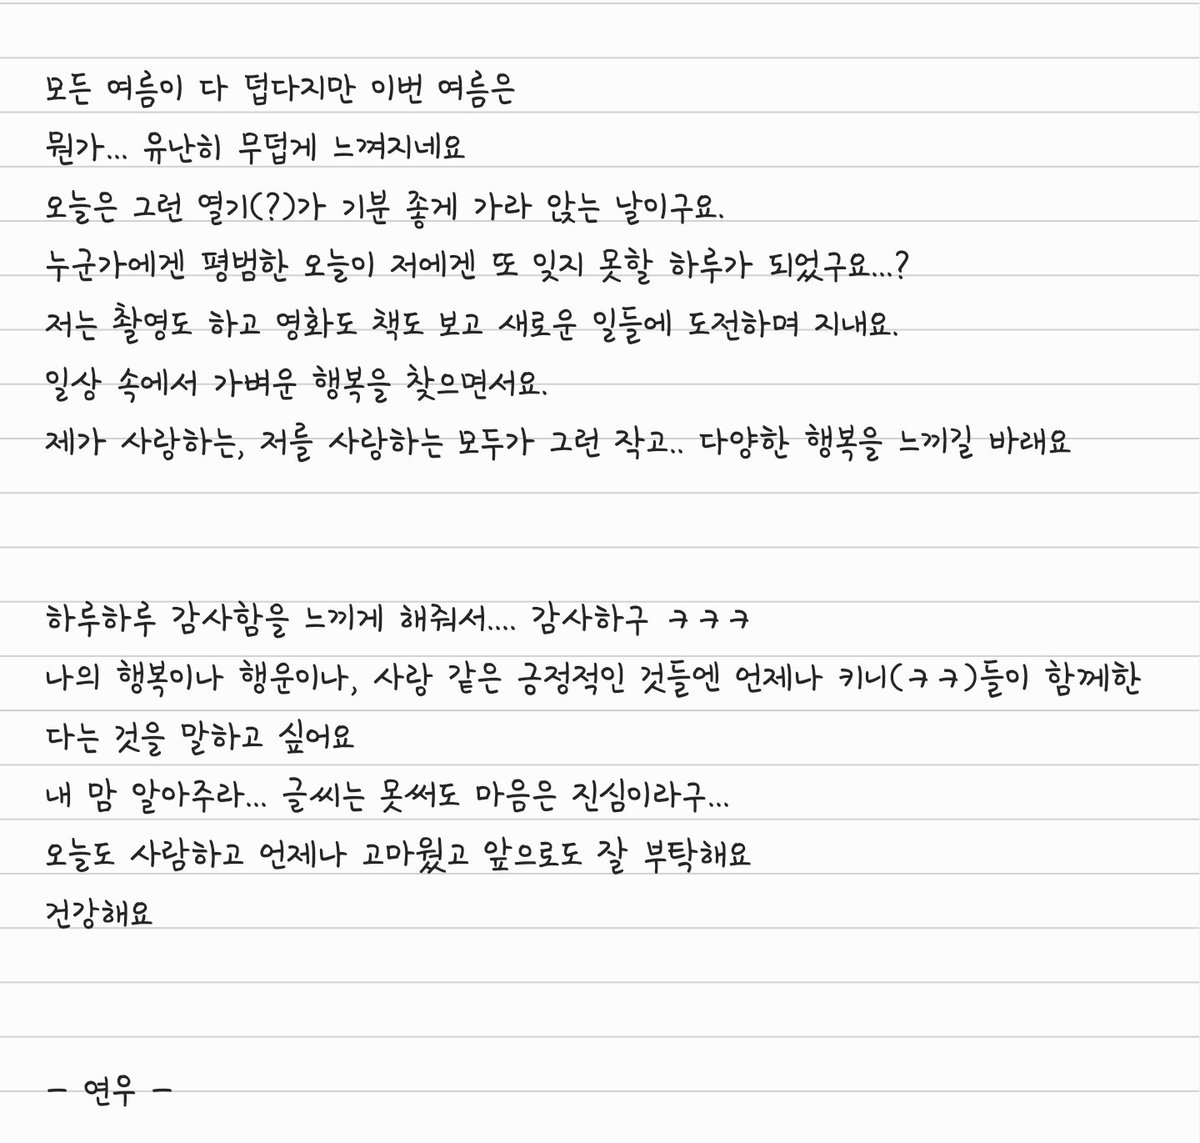 모든 여름이 다 덥다지만 이번 여름은
뭔가... 유난히 무덥게 느껴지네요
오늘은 그런 열기(?)가 기분 좋게 가라 앉는 날이구요.
누군가에겐 평범한 오늘이 저에겐 또 잊지 못할 하루가 되었구요...?
저는 촬영도 하고 영화도 책도 보고 새로운 일들에 도전하며 지내요.
일상 속에서 가벼운 행복을 찾으면서요.
제가 사랑하는, 저를 사랑하는 모두가 그런 작고.. 다양한 행복을 느끼길 바래요
하루하루 감사함을 느끼게 해줘서.... 감사하구 ㅋㅋㅋ
나의 행복이나 행운이나, 사랑 같은 긍정적인 것들엔 언제나 키니(ㅋㅋ)들이 함께한
다는 것을 말하고 싶어요
내 맘 알아주라... 글씨는 못써도 마음은 진심이라구...
오늘도 사람하고 언제나 고마웠고 앞으로도 잘 부탁해요
건강해요
- 연우 -